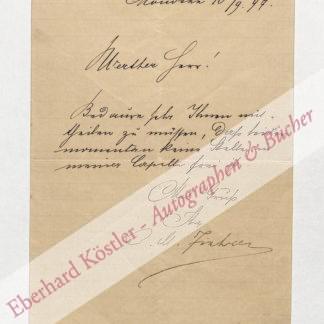 München 10/9. 99.
Werther Herr!
Bedaure sehr Ihnen mit-
theilen zu müssen, daß
momentan keine Stelle
meiner Capelle frei
Gruß
Eberhard Köstler - Autographen & Bücher